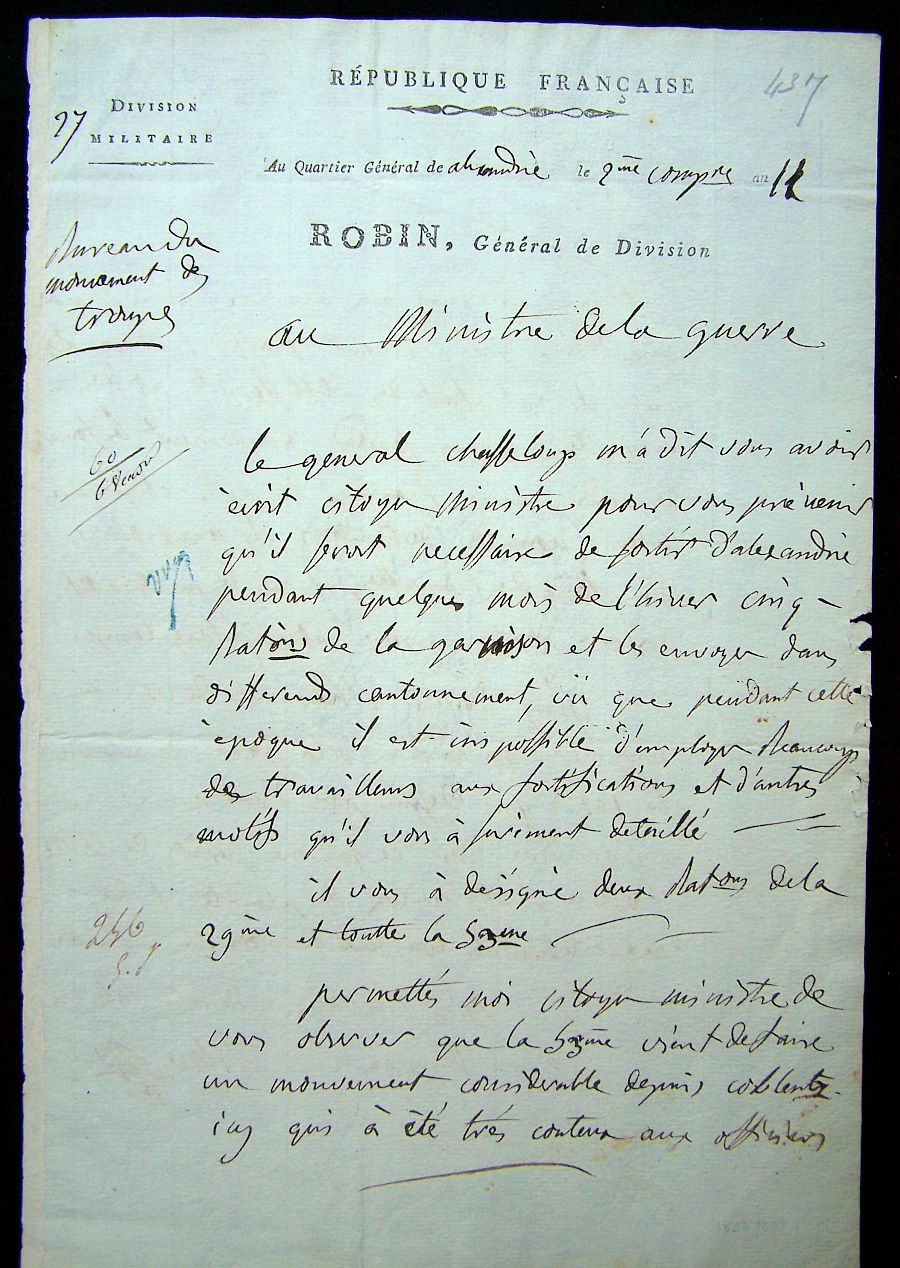 RÉPUBLIQUE FRANÇAISE
437
27
DIVISION
MILITAIRE
Au Quartier Général de alexandrie le 2me compre an 11
ROBIN, Général de Division
Bureau du
mouvement des
troupes
au Ministre de la guerre
60
le general chasseloup m'a dit vous avoir
ècrit citoyen Ministre pour vous prévenir
qu'il serait necessaire de sortir d'alexandrie
pendant quelques mois de l'hiver cinq
Batons de la garnison et les envoyer dans
differends cantonnement, vû que pendant cette
èpoque il est impossible d'employer Beaucoup
des travailleurs aux fortifications et d'autres
motifs qu'il vous à surement detaillé
il vous à désigné deux Batons de la
29me et toutte la 53eme
246
permettés moi citoyen ministre de
vous observer que la 53eme vient de faire
un mouvement considerable depuis coblentz
icy qui à été trés couteux aux officiers